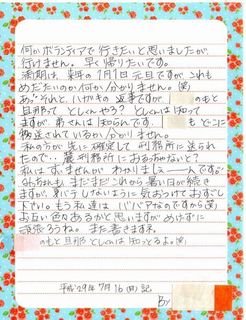 何かボランティアで行きたいと思いましたが、
行けません。早く帰りたいです。
満期は、来年の1月1日元旦ですが これも
めでたいのか何か分かりません。(笑)
あ。それと、ハガキの返事ですが のもと
旦那って としくんやろ? としくんは知って
ますが、弟さんは知られんです も どこに
移送されているか分かりません。
私の方が先に確定して 刑務所に送られ
たので… 麓刑務所におるがないと?
私は すいませんが わかりましぇ〜〜んですね
みちゃんも まだまだこれから 暑い日が続き
ますが、夏バテしないように気をつけておすごし
下さい。もう私達は ババアなのですから(笑)
お互い色々あるかと思いますが めげずに
頑張ろうね。また書きます。
のもと旦那 としくんは知っとるよ。(笑)
平成29年 7月 16(日) 記
By